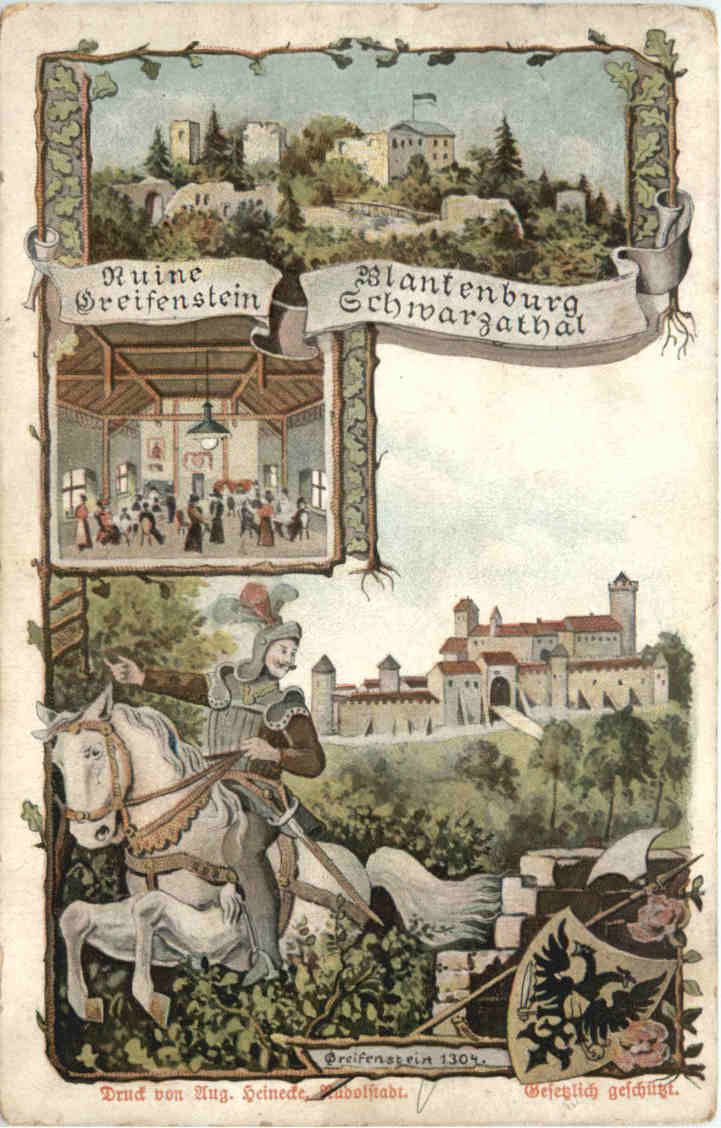 Ruine
Greifenstein
Blankenburg
Schwarzathal
Greifenstein 1304.
Druck von Aug. Heinecke, Rudolstadt.
Gesetzlich geschützt.